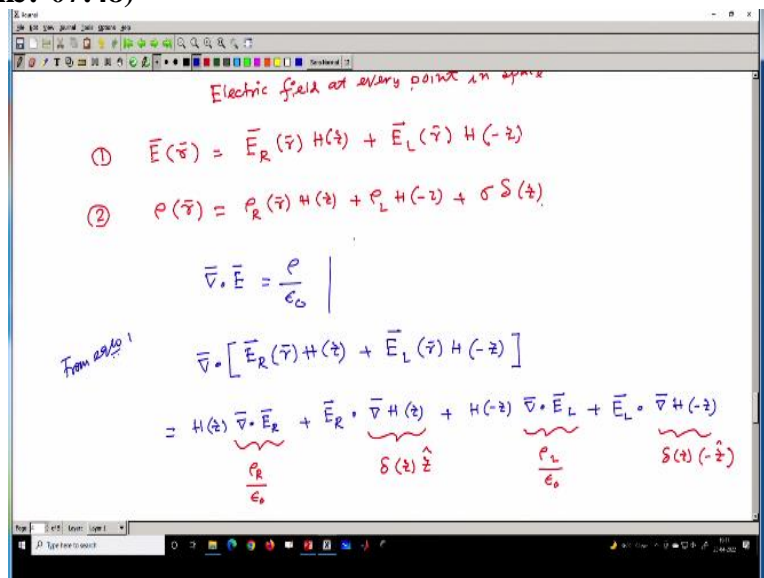 07:48)
Electric field at every point in space
① E̅(r̅) = E⃗_R (r̅) H(z) + E⃗_L (r̅) H(-z)
② ρ(r̅) = ρ_R (r̅) H(z) + ρ_L H(-z) + σ δ(z)
∇̅. E̅ = ρ/ϵ₀ |
From eqno 1
∇̅. [E⃗_R (r̅) H(z) + E⃗_L (r̅) H(-z)]
= H(z) ∇̅. E⃗_R + E⃗_R . ∇̅ H(z) + H(-z) ∇̅. E⃗_L + E⃗_L . ∇̅ H(-z)
ρ_R/ϵ₀ δ(z) ẑ ρ_L/ϵ₀ δ(z) (-ẑ)
Type here to search